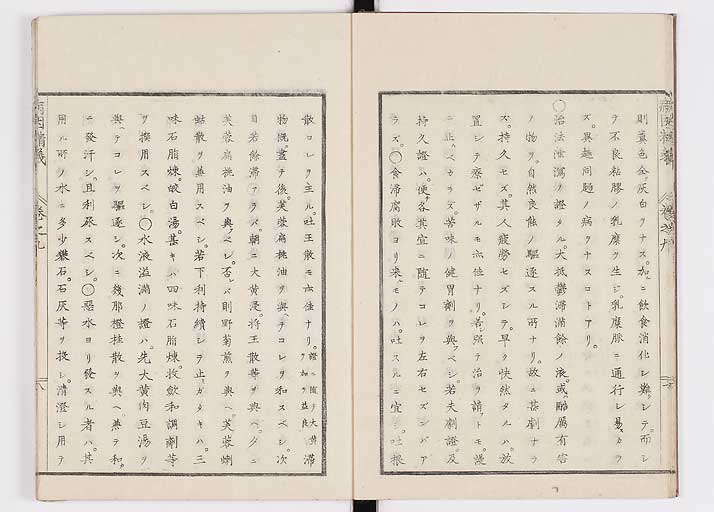 則糞色全灰白ヲナス。加ルニ飲食消化シ難シテ。而シ
テ不良粘膠ノ乳糜ヲ生シ。乳糜脈ニ通行シ易カラ
ズ。異趣同趣ノ病ヲナスコトアリ。
〇治法泄瀉ノ證タル。大抵鬱滯滿餘ノ液。或ハ酷厲有害
ノ物ヲ。自然良能ノ驅逐スル所ナリ。故ニ甚劇ナラ
ズ。持久セズ。其人疲勞セズシテ。早ク快然タルハ。放
置シテ療セザルモ亦佳ナリ。若シ强テ治ヲ請トモ。謾
ニ止ムベカラズ。苦味ノ健胃劑ヲ與フベシ。若夫劇證。及
持久證ハ。便チ各其宜ニ隨テコレヲ左右セズンバア
ラズ。〇食滯腐敗ヨリ来ルモノハ。吐スルニ宜。吐根
散コレヲ主ル。吐王散モ亦佳ナリ。證ニ隨テ大黄ヲ加フ益良滯
物既ニ盡テ後。芙蓉扁桃油ヲ與ヘテコレヲ和スベシ。次
自若餘滯アラバ。朝ニ大黄浸。将王散等ヲ與ヘ。夕ニ
芙蓉扁桃油ヲ與フベシ。否バ則野菊煎ヲ與ヘ。芙蓉蝲
蛄散ヲ兼用スベシ。若下利持續シテ止ミガタキハ。三
味石脂煉。皴白湯。甚キハ四味石脂煉。收斂和調劑等
ヲ撰用スベシ。〇水液溢滿ノ證ハ。先大黄肉豆湯ヲ
與ヘテコレヲ驅逐シ。次ニ幾那橙桂散ヲ與ヘ。兼テ和
ニ發汗シ。且利尿スベシ。〇惡水ヨリ發スル者ハ。其
用ル所ノ水ニ多少礬石。石灰等ヲ投シ。清澄シ用テ